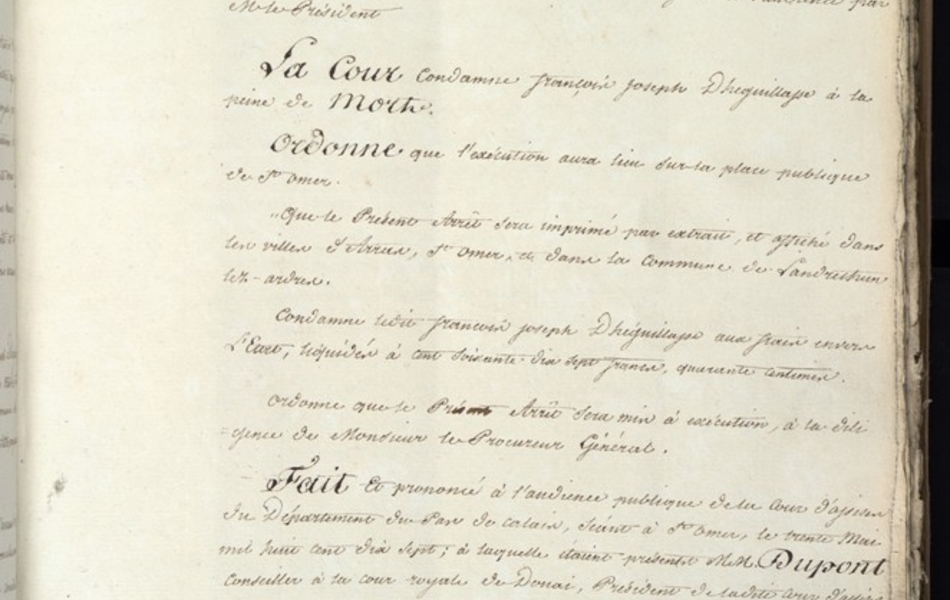 M. le Président
La Cour Condamne françois joseph Dhéguillage à la
peine de Mort.
Ordonne que l'exécution aura lieu sur la place publique
de St omer.
Que le Présent Arrêt sera imprimé par extrait, et affiché dans
les villes d'Arras, St omer, et dans la Commune de Landrethun
lez-ardres.
Condamne ledit françois joseph Dhéguillage aux frais envers
l'Etat, liquidés à cent soixante dix sept francs, quarante centimes.
Ordonne que le Présent Arrêt sera mis à exécution, à la dili
=gence de Monsieur le Procureur Général.
Fait et prononcé à l'audience publique de la cour d'assises
du Département du Pas de calais, séant à St Omer, le trente Mai
mil huit cent dix sept; à laquelle étaient présents M.M. Dupont
Conseiller à la cour royale de Douai, Président de ladite cour d'assises